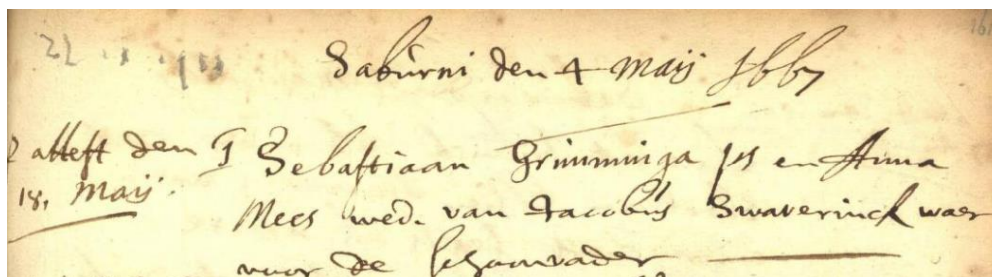 Saturni den 4 Maij 1667
attest den 1 Sebastiaan Grimminga ps en Anna
18, Maij. Mees wed. van Jacobus Swaverinck waer
voor de schoonvader